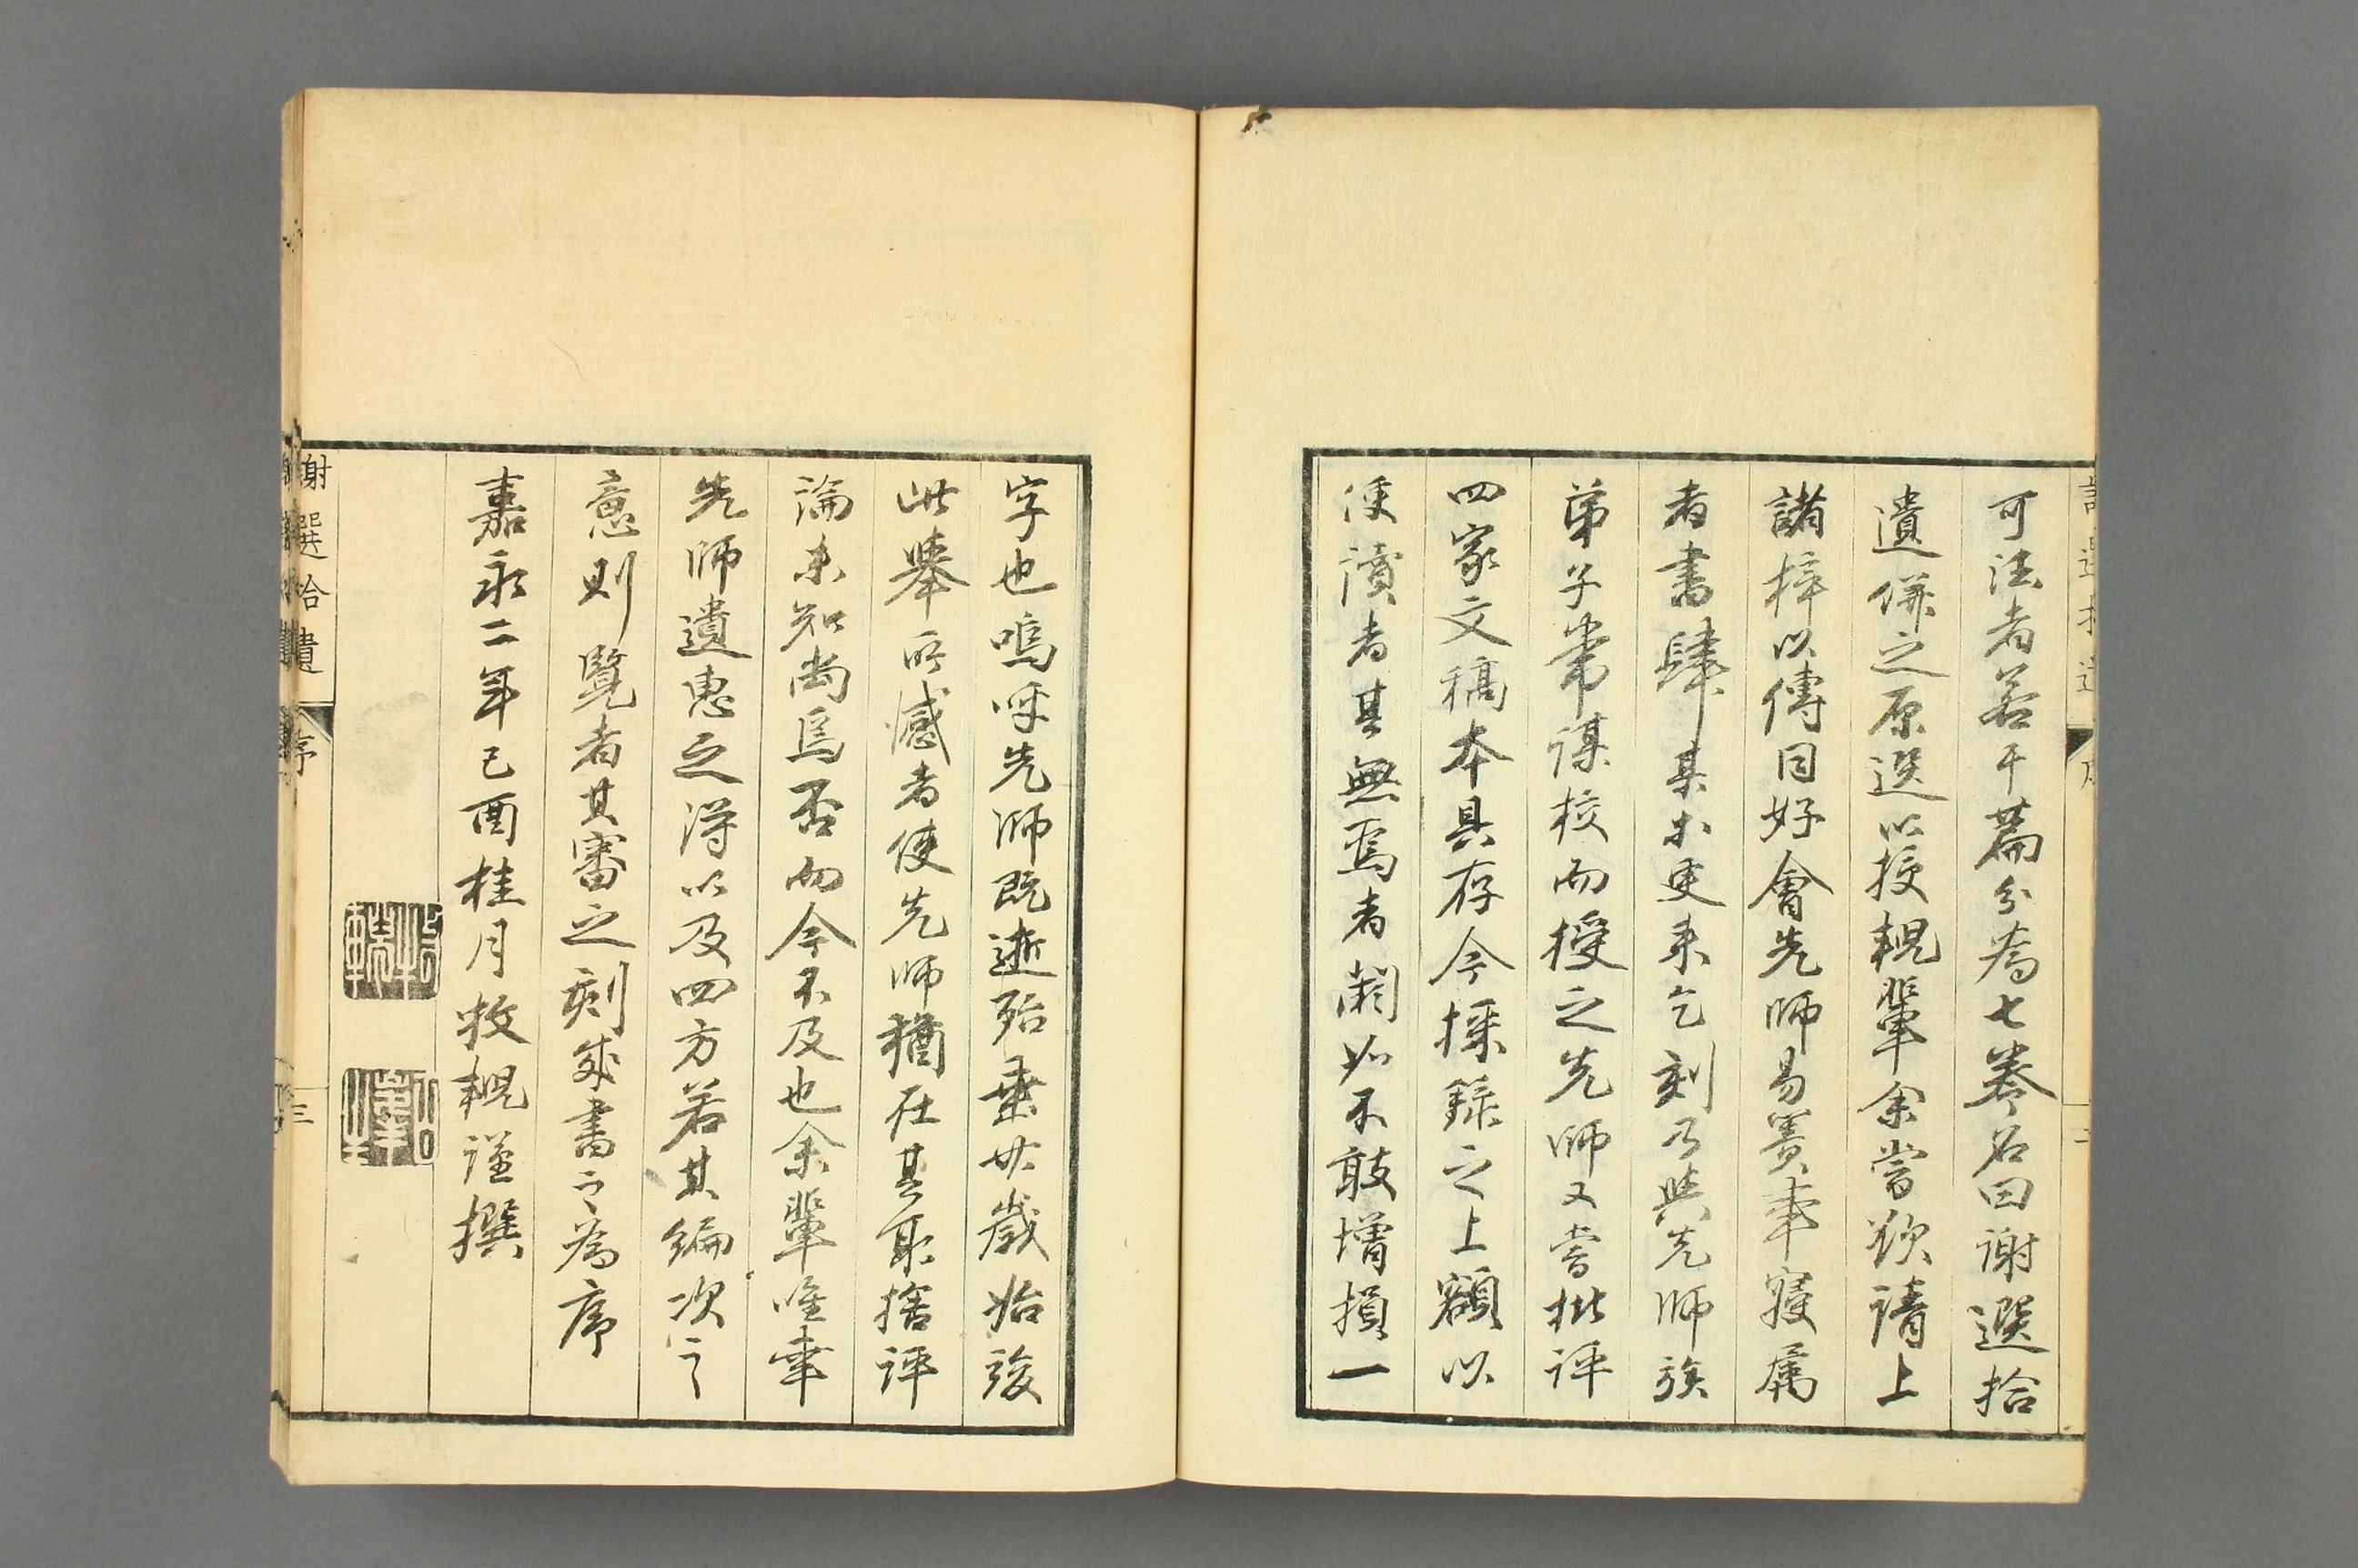 可法者若干篇分為七卷名曰謝選拾
遺併之原選以授輗輩余嘗欲請上
諸梓以傳同好會先師易簀事寢属
者書肆某亦更来乞刻乃與先師族
弟子常謀校而授之先師又嘗批評
四家文稿本具存今採録之上額以
便讀者其無焉者闕如不敢增損一
字也嗚呼先師既逝殆垂廿歲始竣
此舉所憾者使先師猶在其取捨評
論未知尚為否而今不及也余輩唯幸
先師遺惠之得以及四方若其編次之
意則覧者其審之刻成書之為序
嘉永二年己酉桂月牧輗謹撰
謝選拾遺 序 三